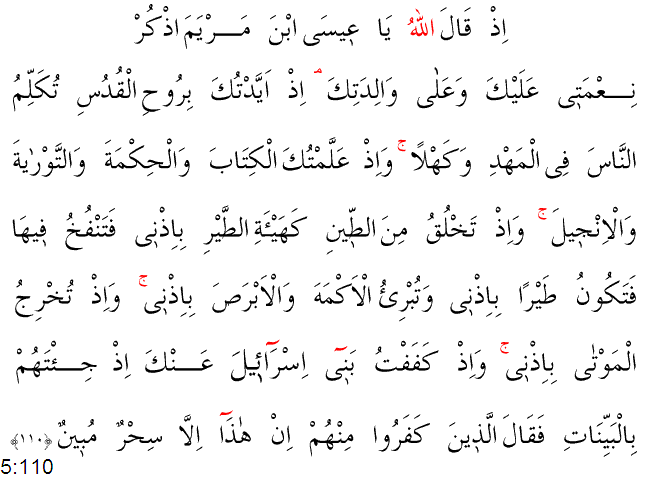 اِذْ قَالَ اللّٰهُ يَا ع۪يسَى ابْنَ مَــرْيَمَ اذْكُرْ
نِــعْمَت۪ي عَلَيْكَ وَعَلٰى وَالِدَتِكَۘ اِذْ اَيَّدْتُكَ بِرُوحِ الْقُدُسِ تُكَلِّمُ
النَّاسَ فِي الْمَهْدِ وَكَهْلًاۚ وَاِذْ عَلَّمْتُكَ الْكِتَابَ وَالْحِكْمَةَ وَالتَّوْرٰيةَ
وَالْاِنْج۪يلَۚ وَاِذْ تَخْلُقُ مِنَ الطّ۪ينِ كَهَيْـَٔةِ الطَّيْرِ بِاِذْن۪ي فَتَنْفُخُ ف۪يهَا
فَتَكُونُ طَيْرًا بِاِذْن۪ي وَتُبْرِئُ الْاَكْمَهَ وَالْاَبْرَصَ بِاِذْن۪يۚ وَاِذْ تُخْرِجُ
الْمَوْتٰى بِاِذْن۪يۚ وَاِذْ كَفَفْتُ بَن۪ٓي اِسْرَٓائ۪يلَ عَــنْكَ اِذْ جِــئْتَهُمْ
بِالْبَيِّنَاتِ فَقَالَ الَّذ۪ينَ كَفَرُوا مِنْهُمْ اِنْ هٰذَٓا اِلَّا سِحْرٌ مُب۪ينٌ ﴿١١٠﴾
5:110